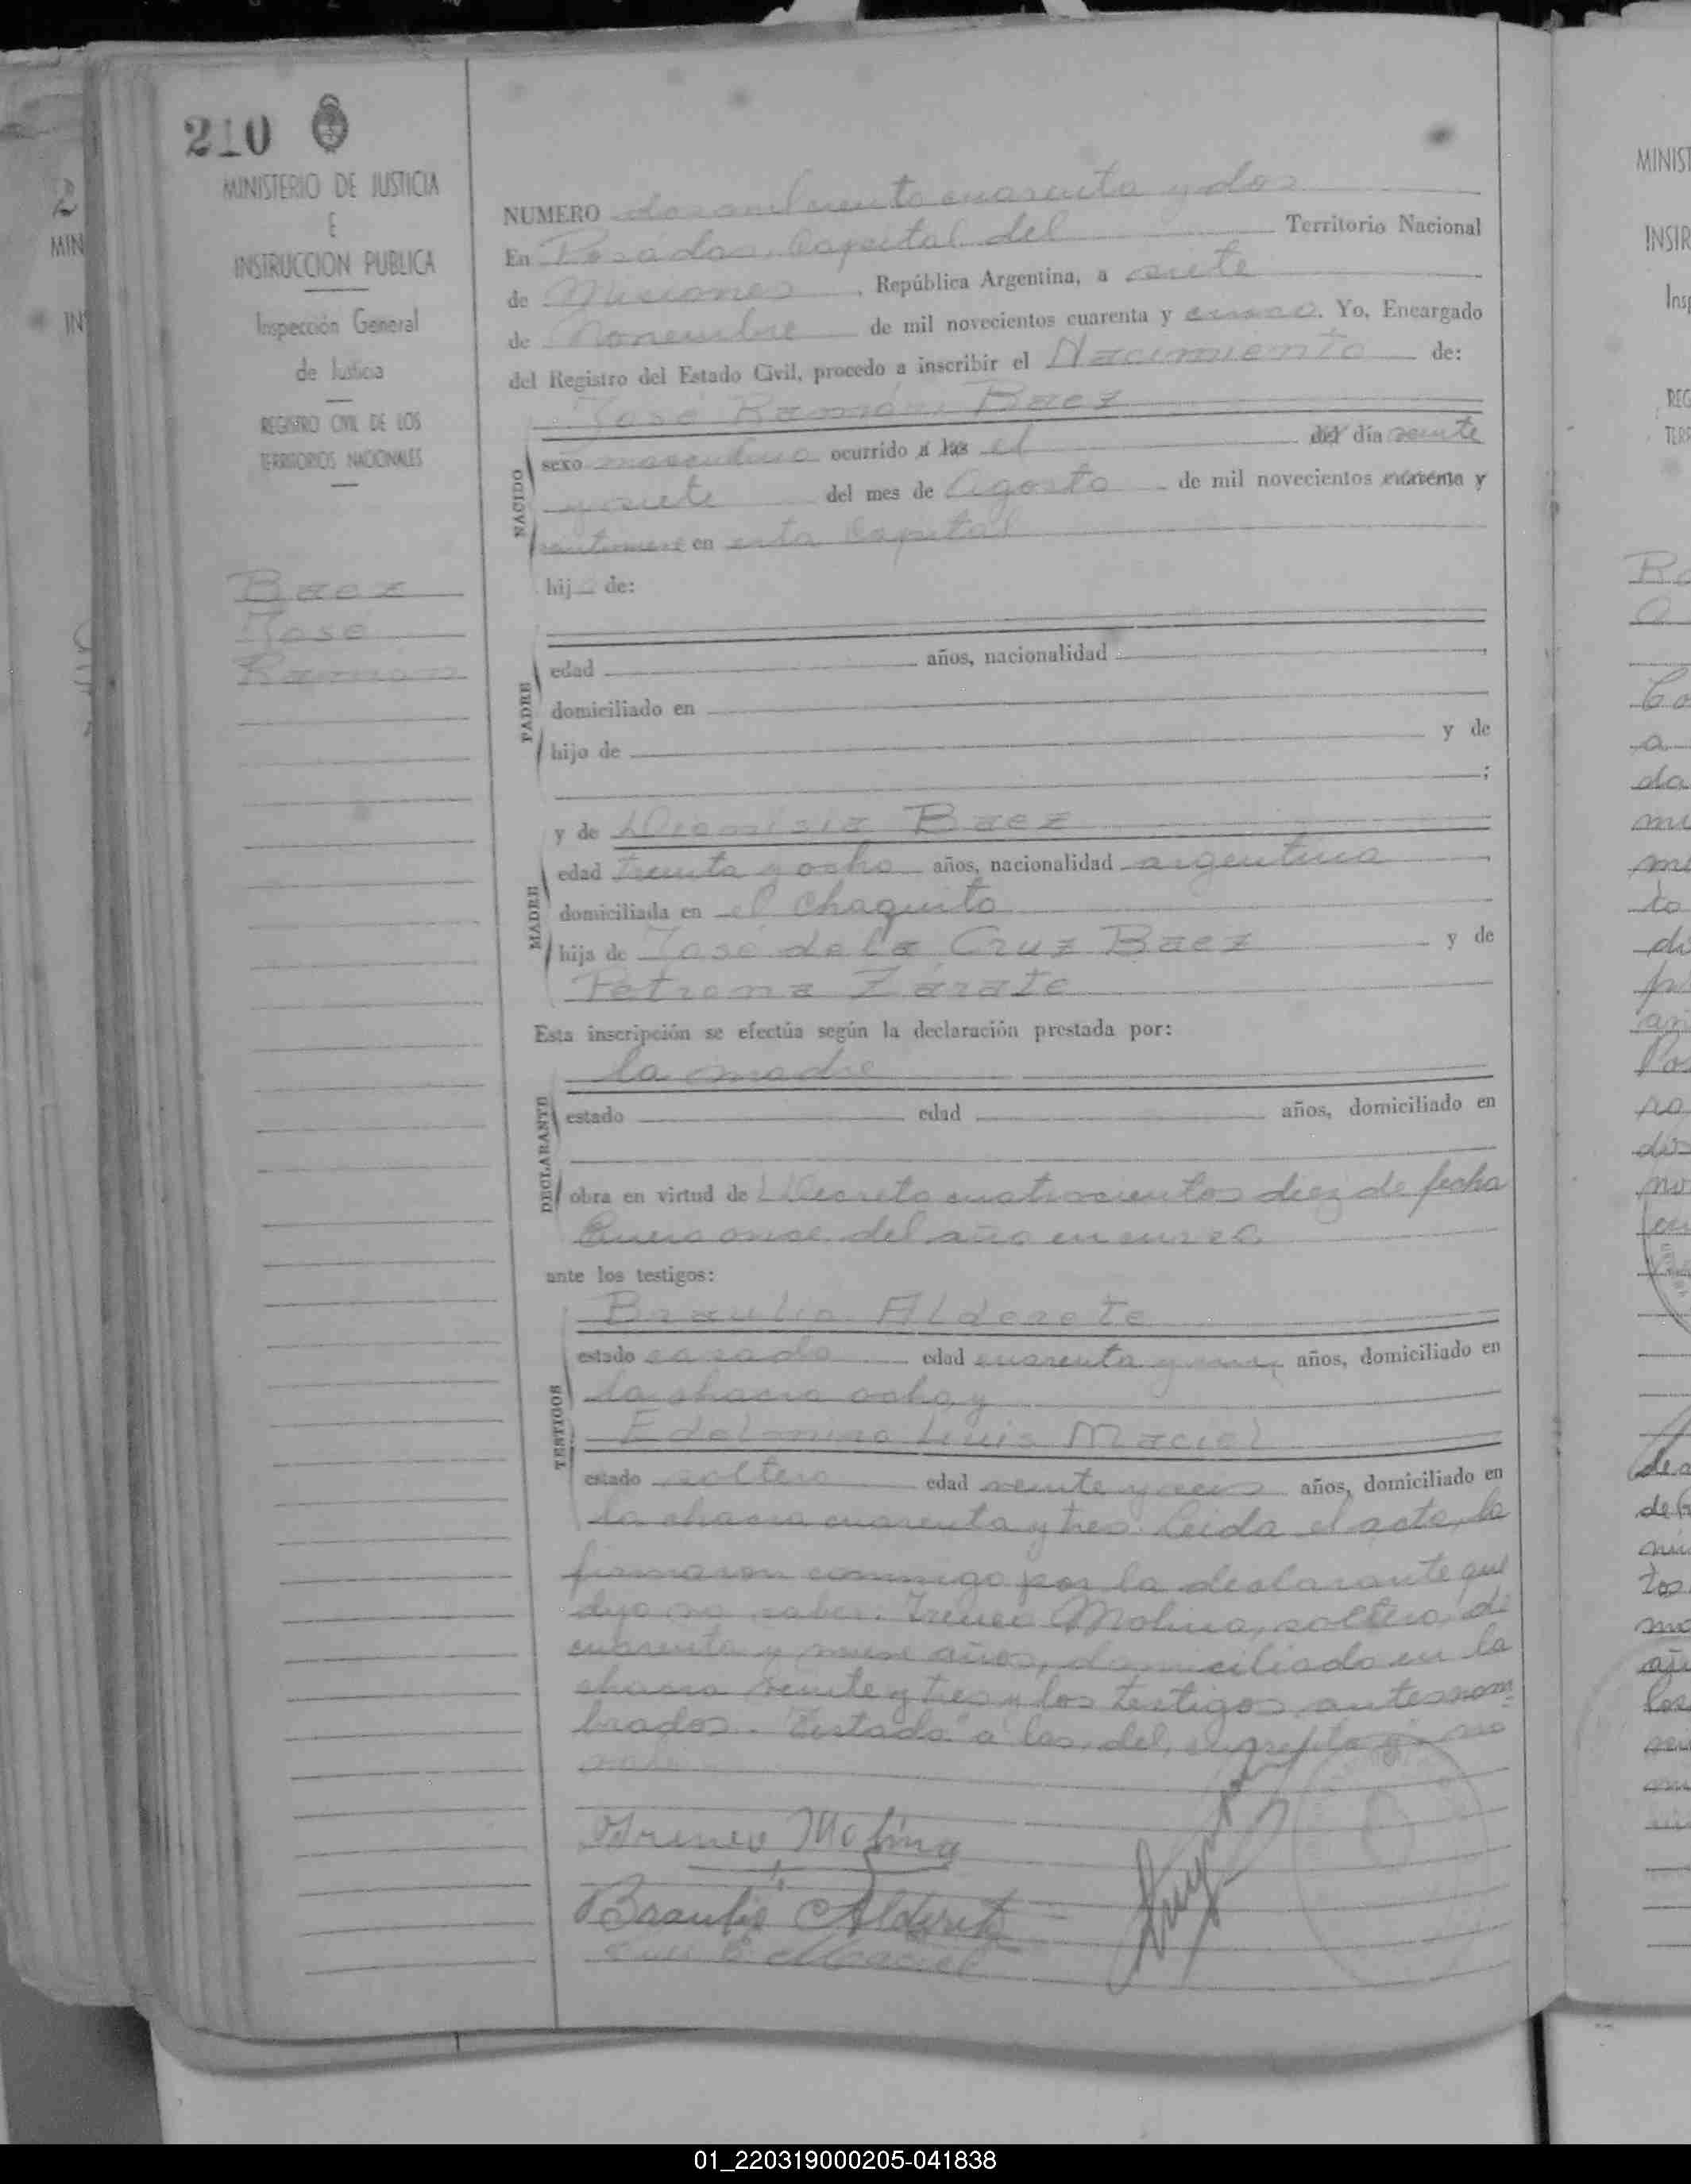 210
MINISTERIO DE JUSTICIA
E
INSTRUCCION PUBLICA
Inspección General
de Justicia
REGISTRO CIVIL DE LOS
TERRITORIOS NACIONALES
Baez
José
Ramón
NUMERO dos mil ciento cuarenta y dos
En Posadas, Capital del Territorio Nacional
de Misiones, República Argentina, a siete
de Noviembre de mil novecientos cuarenta y cinco. Yo, Encargado
del Registro del Estado Civil, procedo a inscribir el Nacimiento de:
José Ramón Baez
NACIDO
sexo masculino ocurrido a las el del día veinte
y siete del mes de Agosto de mil novecientos cuarenta y
en esta Capital
hijo de:
PADRE
edad años, nacionalidad
domiciliado en
hijo de y de
;
MADRE
y de Dionisia Baez
edad treinta y ocho años, nacionalidad argentina
domiciliada en el Chaquito
hija de José de la Cruz Baez y de
Petrona Zárate
Esta inscripción se efectúa según la declaración prestada por:
la madre
DECLARANTE
estado edad años, domiciliado en
obra en virtud de Decreto cuatrocientos diez de fecha
Enero once del año en curso
ante los testigos:
TESTIGOS
Braulio Alderete
estado casado edad cuarenta y años, domiciliado en
la chacra ocho, y
Edelmiro Luis Maciel
estado soltero edad veinte y seis años, domiciliado en
la chacra cuarenta y tres. Leida el acta, la
firmaron conmigo por la declarante que
dijo no saber, Ireneo Molina, soltero, de
cuarenta y nueve años, domiciliado en la
chacra veinte y tres y los testigos antesnom
brados. Testado "a las, del,
Ireneo Molina
Braulio Alderete
Luis E Maciel
01_220319000205-041838